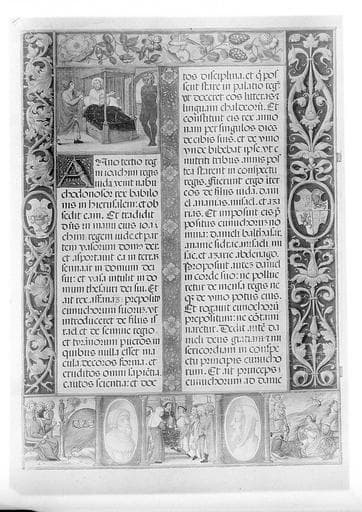 Anno tertio reg
ni ioachim regis
iuda venit nabu
chodonosor rex babilo
nis in hierusalem: et ob
sedit eam. Et tradidit
dñs in manu eius ioa
chim regem iude et par
tem vasorum domus dei:
et asportavit ea in terra
sennaar in domum dei
sui: et vasa intulit in do
mum thesauri dei sui. Et
ait rex asfanaz preposito
eunuchorum suorum vt
introduceret de filiis if
rael et de semine regio
et tyranorum pueros in
quibus nulla esset ma
cula decoros forma, et
eruditos omni sapiētia
cautos scientia: et doc
tos disciplina, et q̄ pos
sent stare in palatio reg
vt doceret eos litteras et
linguam chaldeorū. Et
constituit eis rex anno
nam per singulos dies
de cibis suis, et de vino
vn̄ bibebat ipse: vt e
nutriti tribus annis pos
tea starent in conspectu
regis. Fuerunt ergo iter
eos de filiis iuda. dani
el ananias. misael. et aza
rias. Et imposuit eis p̄
positus eunuchorum no
mina: danieli balthasar.
ananie sidrac. misaeli mi
sac. et azarie abdenago.
Proposuit autez daniel
in corde suo: ne pollue
retur de mensa regis ne
q̄ de vino potus eius.
Et rogauit eunochorū
prepositum: ne cōtami
naretur. Dedit autē da
nieli deus gratiam et mi
sericordiam in conspe
ctu principis eunucho
rum. Et ait princeps
eunuchorum ad danie